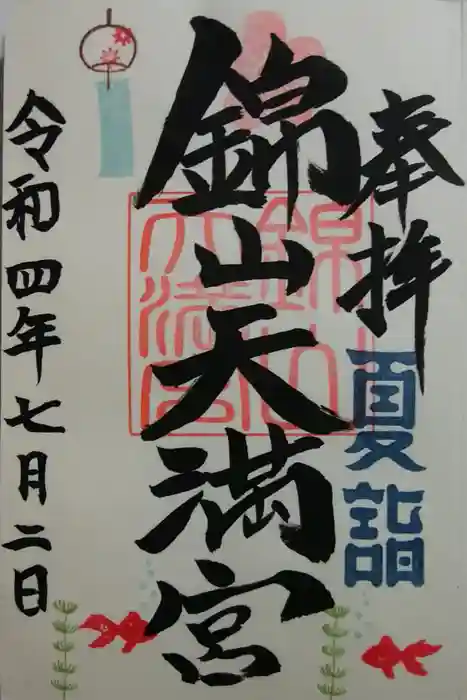 奉拝
夏詣
錦山天満宮
錦山
天満宮
令和四年七月二日